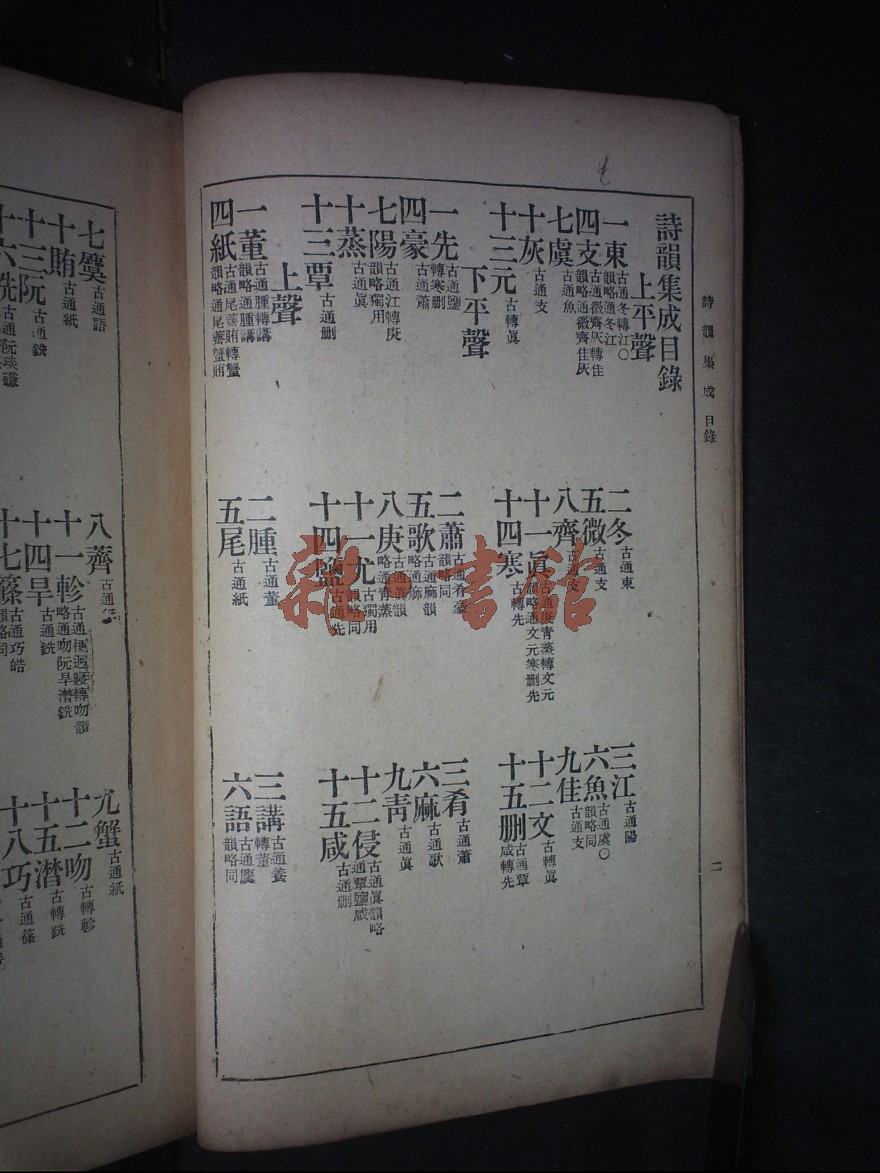 詩韻集成 目錄
二
詩韻集成目錄
上平聲
一東 古通冬轉江○韻略通冬江
二冬 古通東
三江 古通陽
四支 古通微齊灰轉佳韻略通微齊佳灰
五微 古通支
六魚 古通虞○韻略同
七虞 古通魚
八齊 古通支
九佳 古通支
十灰 古通支
十一眞 韻略通文元寒刪先
十二文 古轉眞
十三元 古轉眞
十四寒 古轉先
十五刪 古通覃咸轉先
下平聲
一先 古通鹽轉寒刪
二蕭 古通肴豪韻略同
三肴 古通蕭
四豪 古通蕭
五歌 古通麻韻略通麻
六麻 古通歌
七陽 古通江轉庚韻略獨用
八庚 古通眞韻略通青蒸
九靑 古通眞
十蒸 古通眞
十一尤 古獨用韻略同
十二侵 古通眞韻略通覃鹽咸
十三覃 古通刪
十四鹽 古通先
十五咸 古通刪
上聲
一董 古通腫轉講韻略通腫講
二腫 古通董
三講 古通養轉董
四紙 古通尾薺賄轉蟹韻略通尾薺蟹賄
五尾 古通紙
六語 古通麌韻略同
七麌 古通語
八薺 古通
九蟹 古通紙
十賄 古通紙
十一軫 略通吻阮旱潸銑
十二吻 古轉軫
十三阮 古通銑
十四旱 古通銑
十五潸 古轉銑
十六銑
十七篠 古通巧皓
十八巧 古通篠
雜·書館